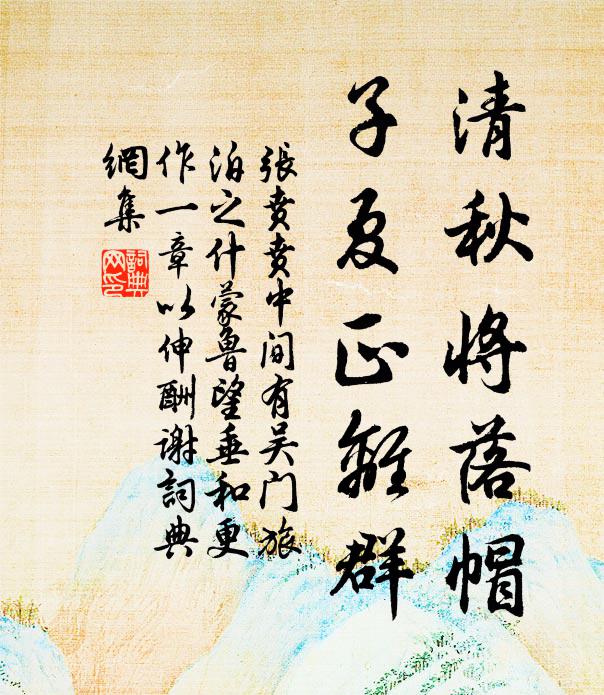 清秋将落帽
子夏正離群
張賁賁中间有吴门旅
泊之什蒙魯望垂和更
作一章以伸酬謝詞典
網集
詞典网印